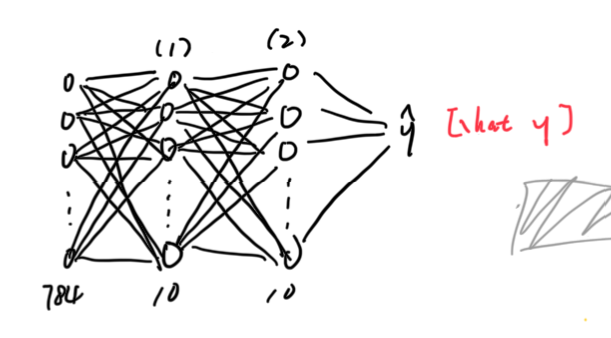 (1) (2)
ŷ [\hat y]
784 10 10